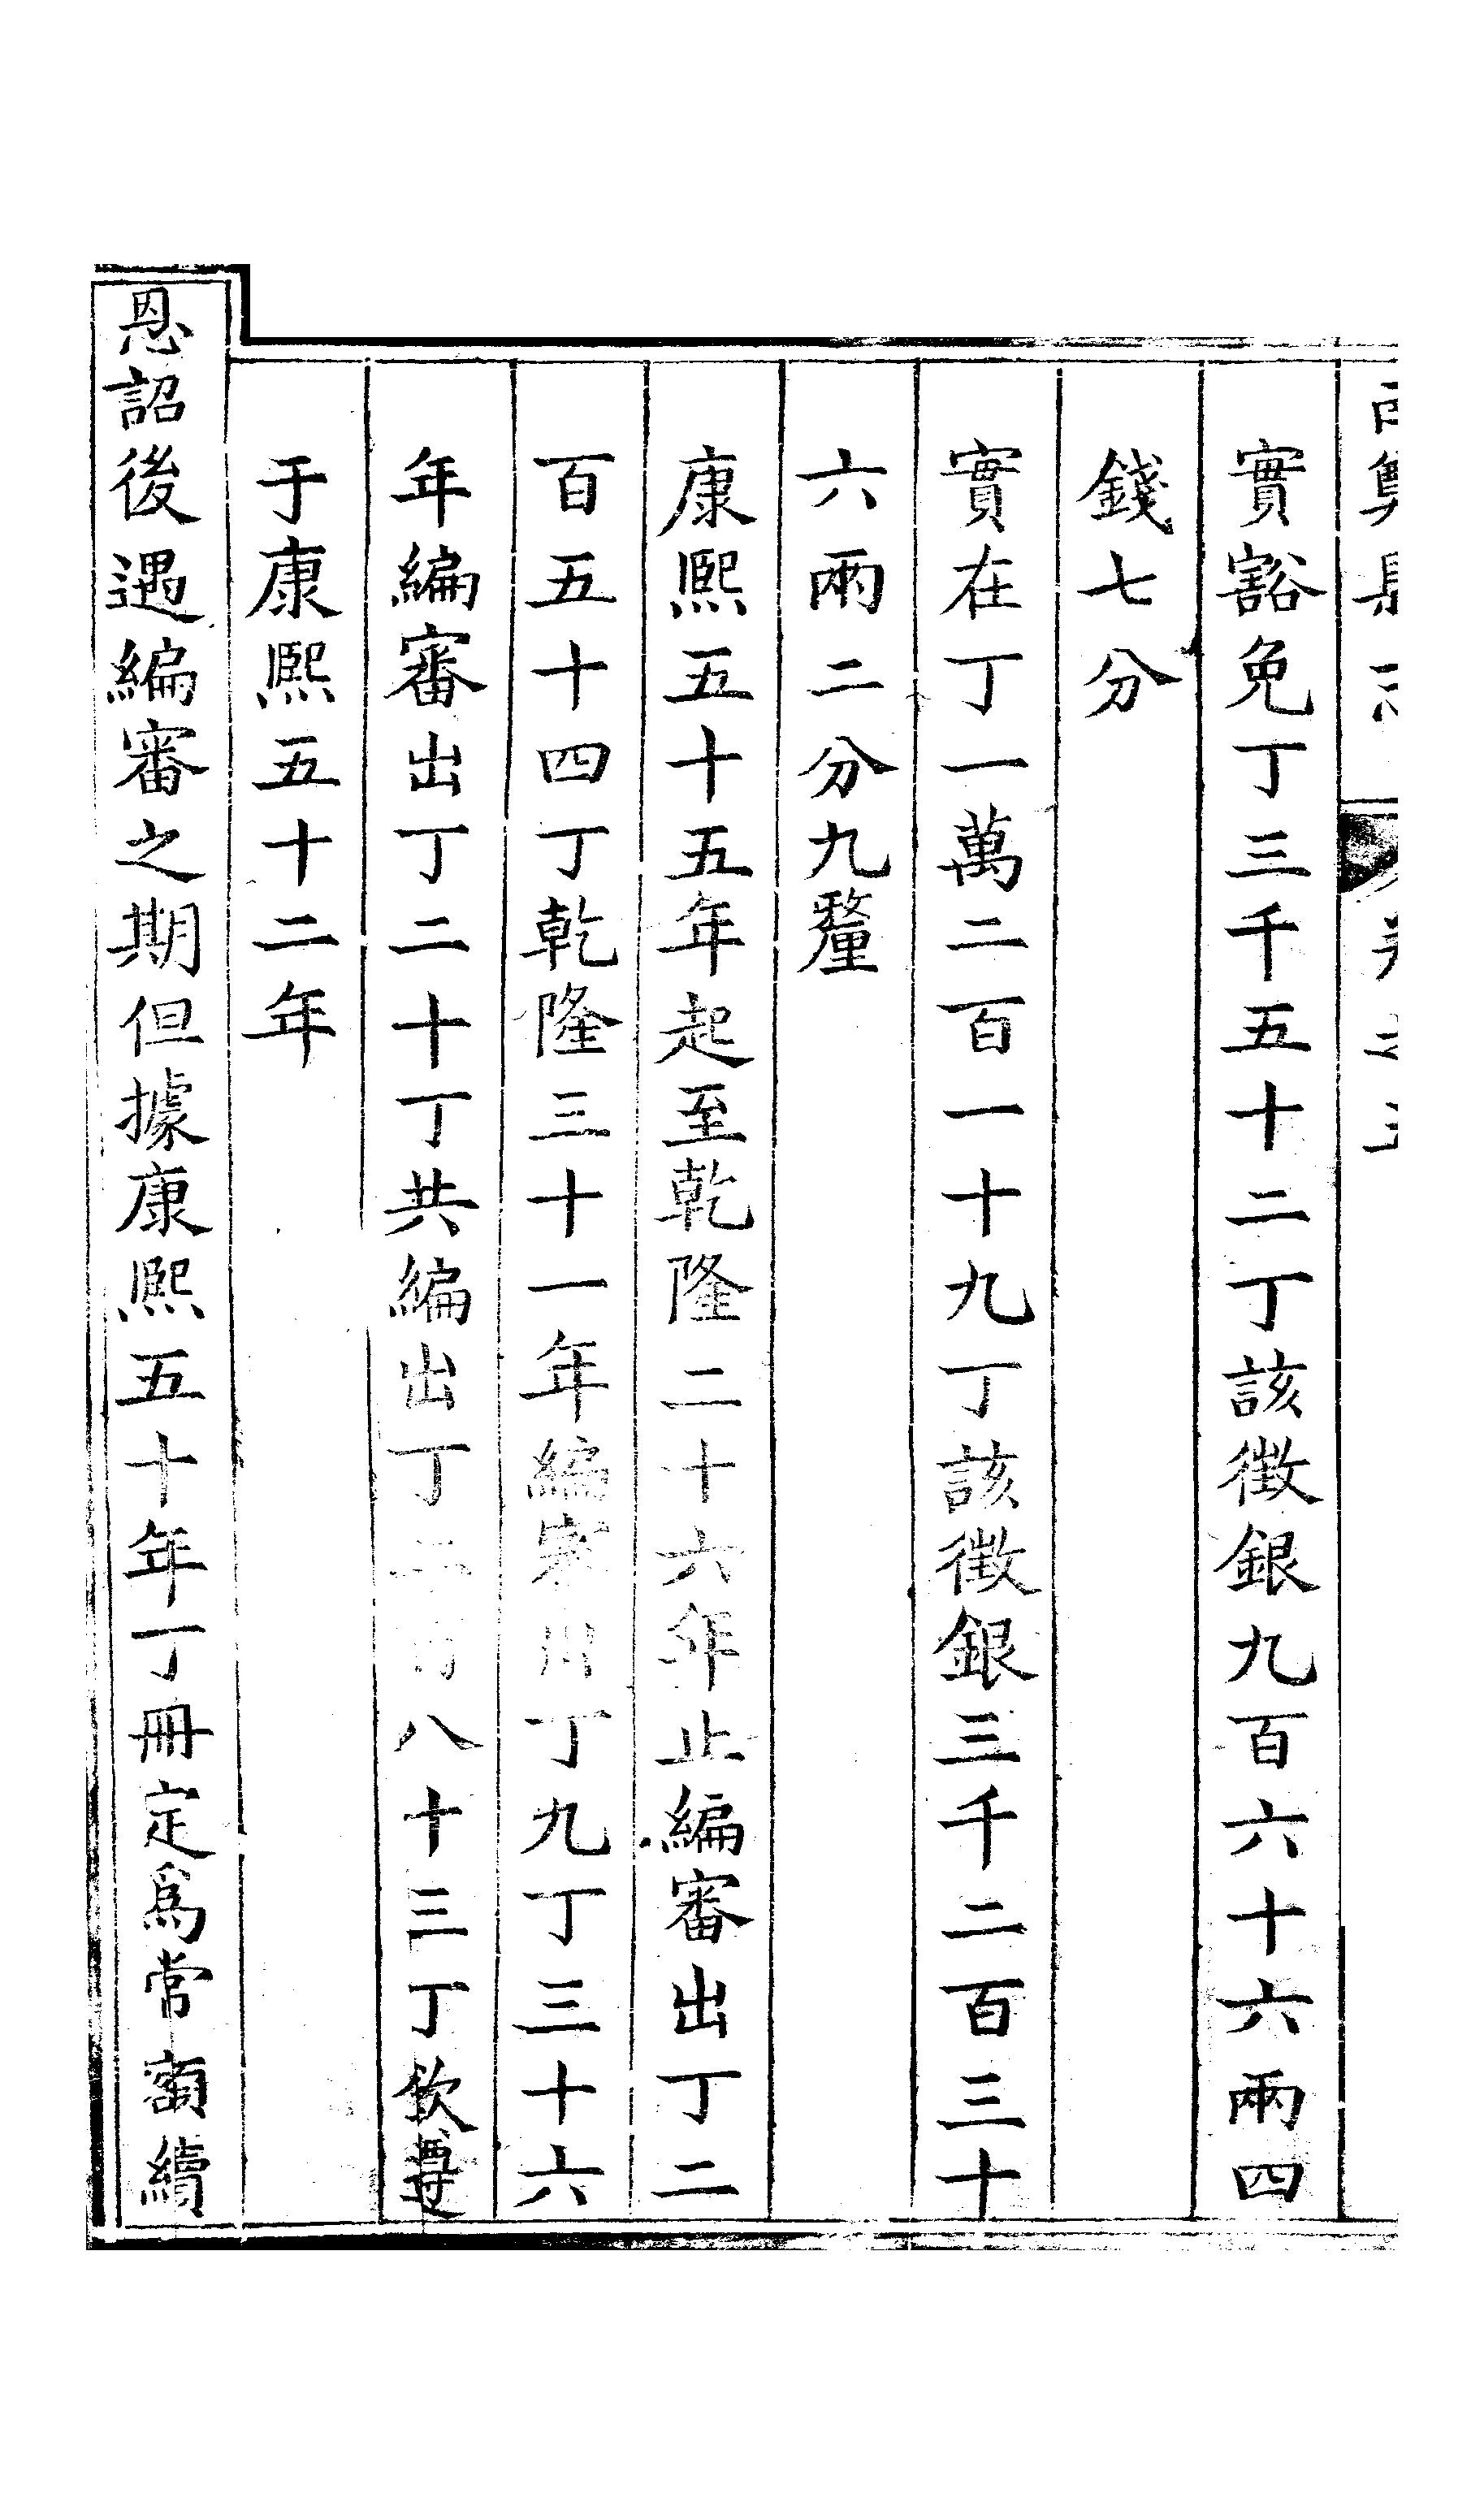 實豁免丁三千五十二丁該徵銀九百六十六兩四
錢七分
實在丁一萬二百一十九丁該徵銀三千二百三十
六兩二分九釐
康熙五十五年起至乾隆二十六年止編審出丁二
百五十四丁乾隆三十一年編審出丁九丁三十六
年編審出丁二十丁共編出丁二百八十三丁欽遵
于康熙五十二年
恩詔後遇編審之期但據康熙五十年丁冊定爲常額續